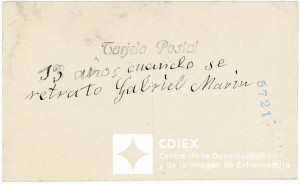 Tarjeta Postal
13 años cuando se
retrato Gabriel Marin
5721
CDIEX
Centro de la Documentación
y de la Imagen de Extremadura